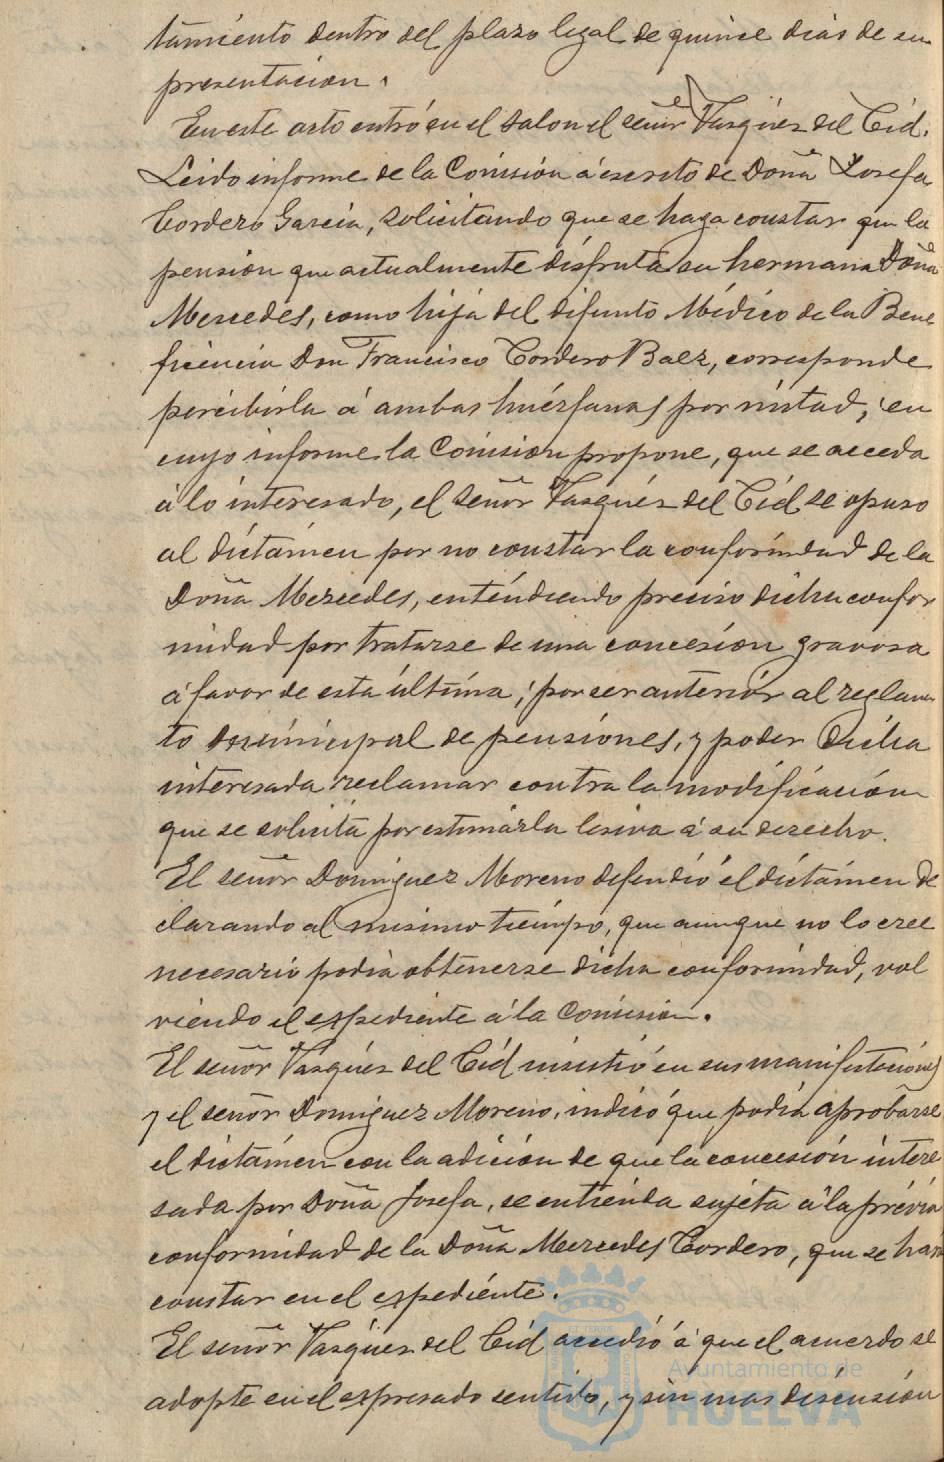 tamiento dentro del plazo legal de quince dias de su
presentacion.
En este acto entró en el salon el señor Vazquez del Cid.
Leido informe de la Comisión á escrito de Doña Josefa
Cordero Garcia, solicitando que se haga constar que la
pension que actualmente disfruta su hermana Doña
Mercedes, como hija del difunto Médico de la Bene
ficencia Don Francisco Cordero Baez, corresponde
percibirla á ambas huérfanas por mitad, en
cuyo informe la Comision propone, que se acceda
á lo interesado, el señor Vazquez del Cid se opuso
al dictámen por no constar la conformidad de la
Doña Mercedes, entendiendo preciso dicha confor
midad por tratarse de una concesion gravosa
á favor de esta última, por ser anterior al reglamen
to municipal de pensiones, y poder dicha
interesada reclamar contra la modificación
que se solicita por estimarla lesiva á su derecho.
El señor Dominguez Moreno defendió el dictámen de
clarando al mismo tiempo, que aunque no lo cree
necesario podia obtenerse dicha conformidad, vol
viendo el espediente á la Comision.
El señor Vazquez del Cid insistió en sus manifestaciones
y el señor Dominguez Moreno, indicó que podia aprobarse
el dictámen con la adición de que la concesión intere
sada por Doña Josefa, se entienda sujeta á la prévia
conformidad de la Doña Mercedes Cordero, que se hará
constar en el espediente.
El señor Vazquez del Cid accedió á que el acuerdo se
adopte en el espresado sentido, y sin mas discusión
Ayuntamiento de
HUELVA